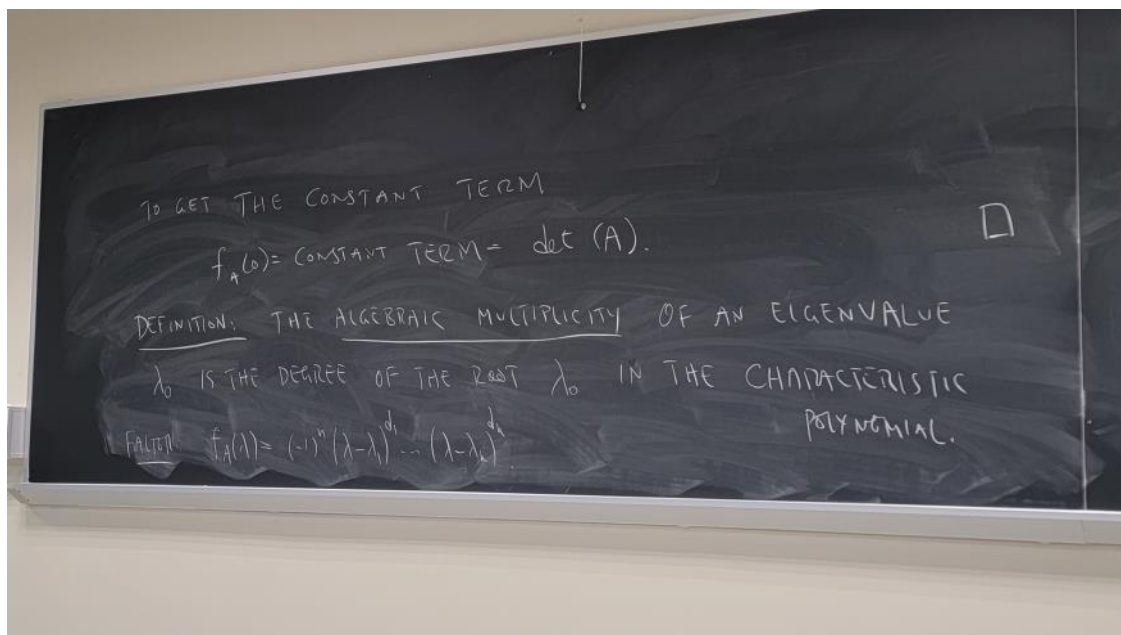 TO GET THE CONSTANT TERM
f_A(0) = CONSTANT TERM = det (A). □
DEFINITION: THE ALGEBRAIC MULTIPLICITY OF AN EIGENVALUE
λ₀ IS THE DEGREE OF THE ROOT λ₀ IN THE CHARACTERISTIC
POLYNOMIAL.
FACTOR f_A(λ) = (-1)^n (λ-λ_1)^{d_1} ... (λ-λ_k)^{d_k}